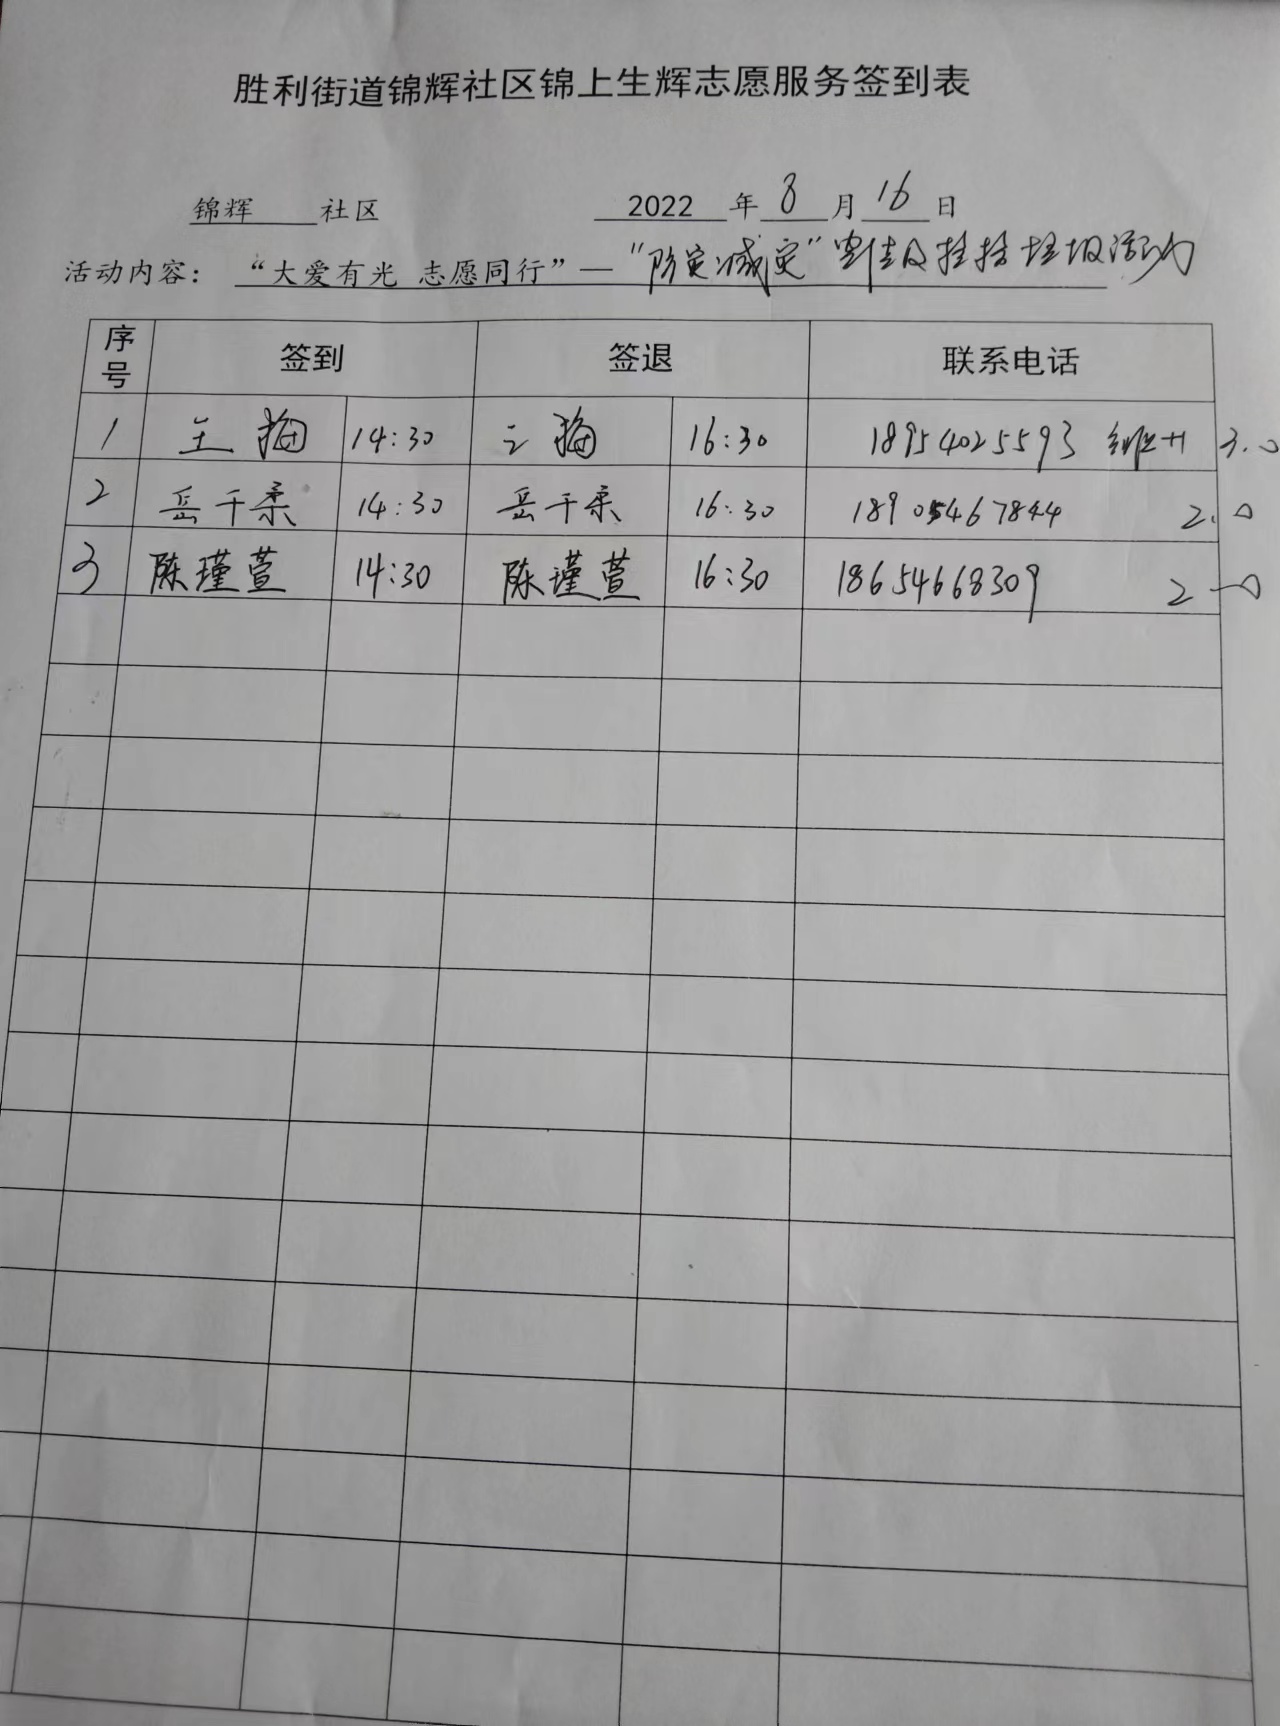 胜利街道锦辉社区锦上生辉志愿服务签到表
锦辉 社区 2022 年 8 月 16 日
活动内容： “大爱有光 志愿同行”—“防灾减灾” 及 垃圾活动
序号 签到 签退 联系电话
1 王梅 14:30 王梅 16:30 18954025593 3.0
2 岳千柔 14:30 岳千柔 16:30 18905467844 2.0
3 陈瑾萱 14:30 陈瑾萱 16:30 18654668309 2.0